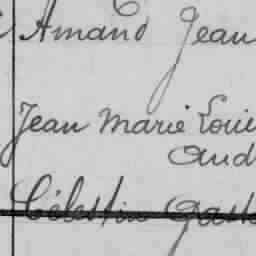 Amand Jean
Jean Marie Loui
And
Célestin Gast